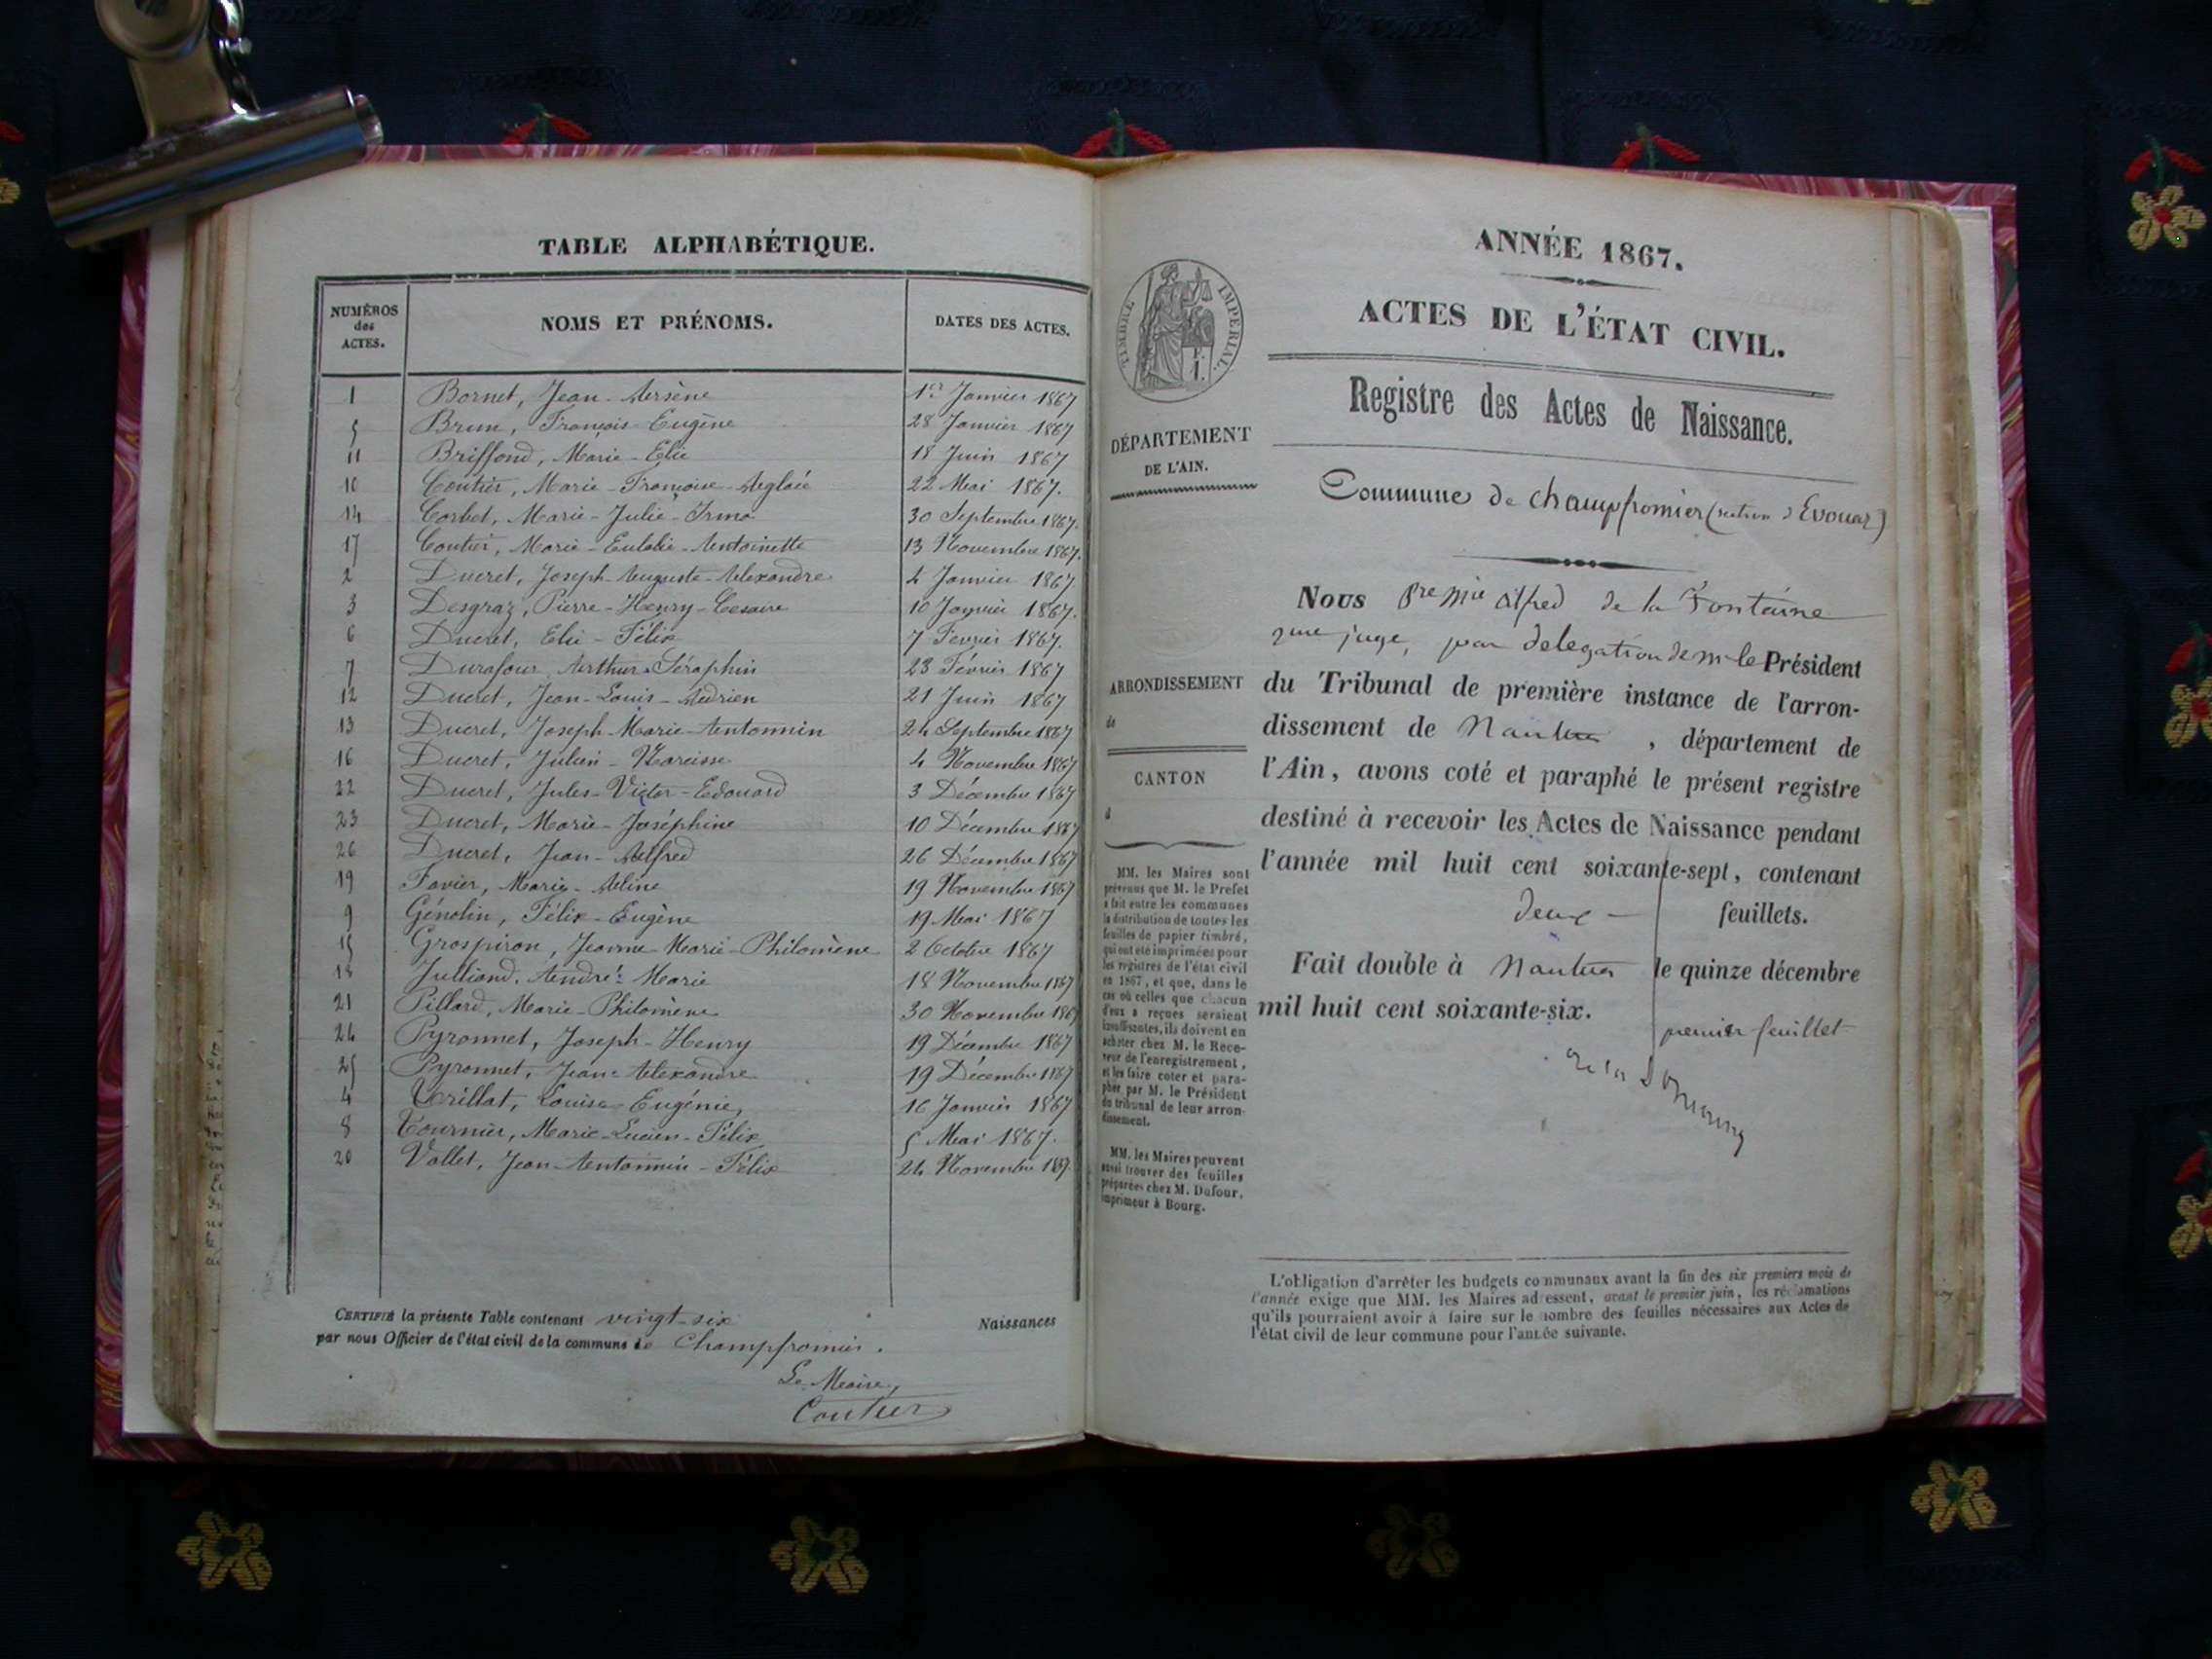 TABLE ALPHABÉTIQUE.
NUMÉROS des ACTES. NOMS ET PRÉNOMS. DATES DES ACTES.
1 Bornet, Jean-Arsène 1er Janvier 1867
5 Brun, François-Eugène 28 Janvier 1867
11 Briffond, Marie-Elie 18 Juin 1867
10 Coutier, Marie-Françoise-Aglaé 22 Mai 1867.
14 Corbet, Marie-Julie-Irma 30 Septembre 1867.
17 Coutier, Marie-Eulalie-Antoinette 13 Novembre 1867.
2 Ducret, Joseph-Auguste-Alexandre 4 Janvier 1867.
3 Desgraz, Pierre-Henry-Cesaire 10 Janvier 1867.
6 Ducret, Elie-Félix 7 Fevrier 1867.
7 Durafour, Arthur-Séraphin 23 Février 1867
12 Ducret, Jean-Louis-Adrien 21 Juin 1867
13 Ducret, Joseph-Marie-Antonnin 24 Septembre 1867
16 Ducret, Julien-Narcisse 4 Novembre 1867
22 Ducret, Jules-Victor-Edouard 3 Décembre 1867
23 Ducret, Marie-Joséphine 10 Décembre 1867
26 Ducret, Jean-Alfred 26 Décembre 1867
19 Favier, Marie-Aline 19 Novembre 1867
9 Génolin, Félix-Eugène 19 Mai 1867
15 Grospiron, Jeanne-Marie-Philomène 2 Octobre 1867
18 Julliand, André-Marie 18 Novembre 1867
21 Pillard, Marie-Philomène 30 Novembre 1867
24 Pyronnet, Joseph-Henry 19 Décembre 1867
25 Pyronnet, Jean-Alexandre 19 Décembre 1867
4 Trillat, Louise-Eugénie, 16 Janvier 1867
8 Tournier, Marie-Lucien-Félix 5 Mai 1867.
20 Vallet, Jean-Antonnin-Félix 24 Novembre 1867
CERTIFIÉ la présente Table contenant vingt-six Naissances
par nous Officier de l'état civil de la commune de Champfromier.
Le Maire,
Coutier
ANNÉE 1867.
ACTES DE L'ÉTAT CIVIL.
Registre des Actes de Naissance.
TIMBRE IMPERIAL.
1.
DÉPARTEMENT
DE L'AIN.
Commune de champfromier (section d'Evouaz)
ARRONDISSEMENT
de
CANTON
d
Nous Alfred de la Fontaine
juge, par delegation de m. le Président
du Tribunal de première instance de l'arron-
dissement de Nantua, département de
l'Ain, avons coté et paraphé le présent registre
destiné à recevoir les Actes de Naissance pendant
l'année mil huit cent soixante-sept, contenant
deux feuillets.
Fait double à Nantua le quinze décembre
mil huit cent soixante-six.
premier feuillet
MM. les Maires sont
prévenus que M. le Prefet
a fait entre les communes
la distribution de toutes les
feuilles de papier timbré,
qui ont été imprimées pour
les registres de l'état civil
en 1867, et que, dans le
cas où celles que chacun
d'eux a reçues seraient
insuffisantes, ils doivent en
acheter chez M. le Rece-
veur de l'enregistrement,
et les faire coter et para-
pher par M. le Président
du tribunal de leur arron-
dissement.
MM. les Maires peuvent
aussi trouver des feuilles
préparées chez M. Dufour,
imprimeur à Bourg.
L'obligation d'arrêter les budgets communaux avant la fin des six premiers mois de
l'année exige que MM. les Maires adressent, avant le premier juin, les réclamations
qu'ils pourraient avoir à faire sur le nombre des feuilles nécessaires aux Actes de
l'état civil de leur commune pour l'année suivante.